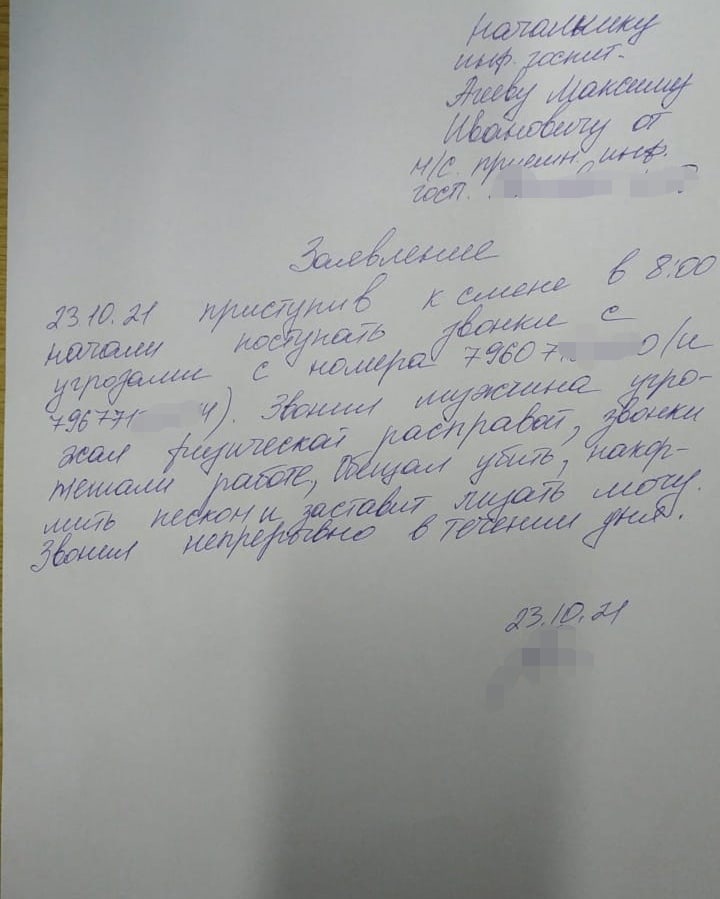 Начальнику
инф. госпит.
Агееву Максиму
Ивановичу от
м/с. приемн. инф.
госп.
Заявление
23.10.21 приступив к смене в 8:00
начали поступать звонки с
угрозами с номера 7960 7 0/и
796771 4). Звонил мужчина угро-
жал физической расправой, звонки
мешали работе, Обещал убить, накор-
мить песком и заставит лизать мочу.
Звонил непрерывно в течении дня.
23.10.21